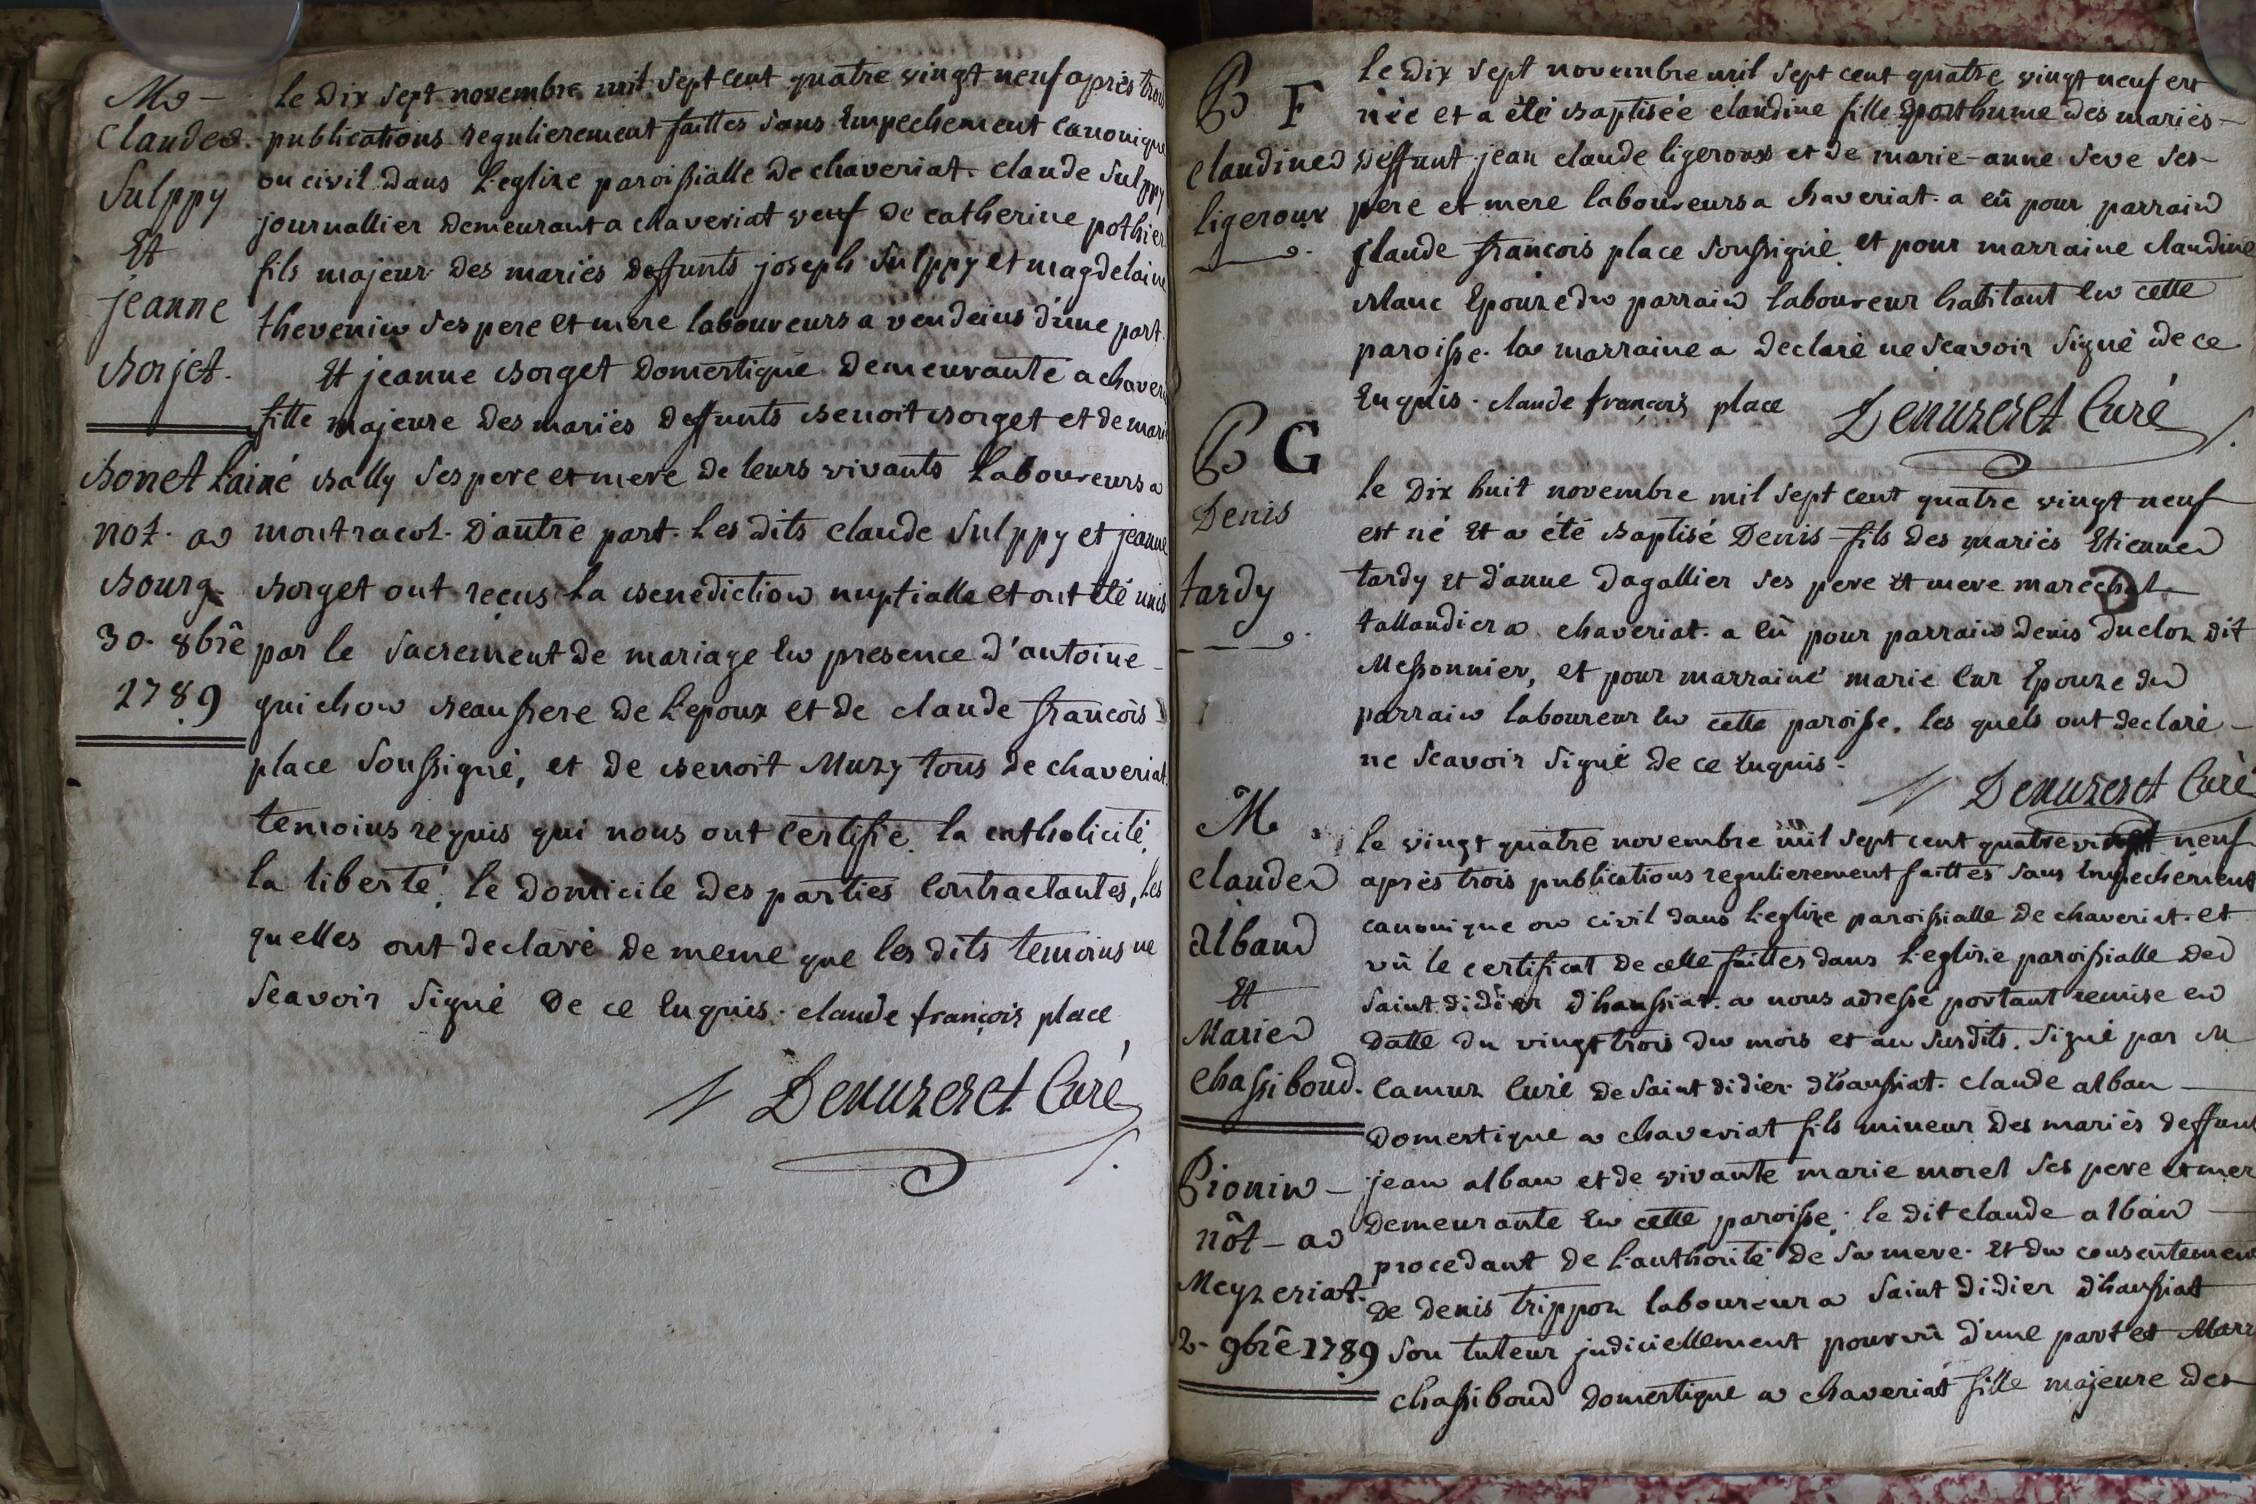 M
Claude
Sulppy
Et
jeanne
borjet.
bonet lainé
not. a
bourg
30. 8bre
1789
le dix sept novembre mil sept cent quatre vingt neuf après trois
publications regulierement faittes sans Empechement canonique
ou civil dans L'eglize paroissialle de chaveriat. claude Sulppy
journallier demeurant a chaveriat veuf de catherine pothier
fils majeur des mariés deffunts joseph Sulppy et magdelaine
thevenin ses pere et mere laboureurs a vendeins d'une part.
Et jeanne borget domestique demeurante a chaveri
fille majeure des mariés deffunts benoit borget et de mari
bally ses pere et mere de leurs vivants Laboureurs a
montracol. d'autre part. Les dits claude Sulppy et jeanne
borget ont reçus la benediction nuptialle et ont été unis
par le sacrement de mariage en presence d'antoine
guichon beaufrere de L'epoux et de claude françois
place soussigné, et de benoit Muzy tous de chaveriat.
temoins requis qui nous ont certifié la catholicité,
la liberté, le domicile des parties Contractantes, les
quelles ont declaré de meme que les dits temoins ne
sçavoir signé de ce Enquis. claude françois place
Denuzeret Curé
B F
claudine
ligeroux
le dix sept novembre mil sept cent quatre vingt neuf est
née et a été baptisée claudine fille posthume des mariés
deffunt jean claude ligeroux et de marie-anne seve ses
pere et mere laboureurs a chaveriat. a eû pour parrain
claude françois place soussigné et pour marraine claudine
blanc Epouze du parrain laboureur habitant en cette
paroisse. la marraine a declaré ne sçavoir signé de ce
Enquis. claude françois place Denuzeret Curé
B G
Denis
tardy
le dix huit novembre mil sept cent quatre vingt neuf
est né Et a été baptisé Denis fils des mariés Etienne
tardy et d'anne dagallier ses pere et mere marechal
tallandier a chaveriat. a eû pour parrain denis duclos dit
Messonnier, et pour marraine marie Epouze du
parrain laboureur en cette paroisse. les quels ont declaré
ne sçavoir signé de ce Enquis.
Denuzeret Curé
M
claude
alban
Et
Marie
chassiboud.
Pionin
nôt a
Meyzeriat.
2. 9bre 1789
le vingt quatre novembre mil sept cent quatre vingt neuf
après trois publications regulierement faittes sans Empechement
canonique ou civil dans L'eglize paroissialle de chaveriat. et
vû le certificat de celle faittes dans L'eglize paroissialle de
saint didier d'haussiat. a nous adressé portant remise en
datte du vingt trois du mois et an susdits. signé par M
Camuz Curé de saint didier d'haussiat. claude alban
domestique a chaveriat fils mineur des mariés deffunt
jean alban et de vivante marie morel ses pere et mer
demeurante en cette paroisse. le dit claude alban
procedant de L'authorité de sa mere. Et du consentement
de denis trippoz laboureur a saint didier d'haussiat
son tuteur judiciellement pourvû d'une part et Mari
chassiboud domestique a chaveriat fille majeure des